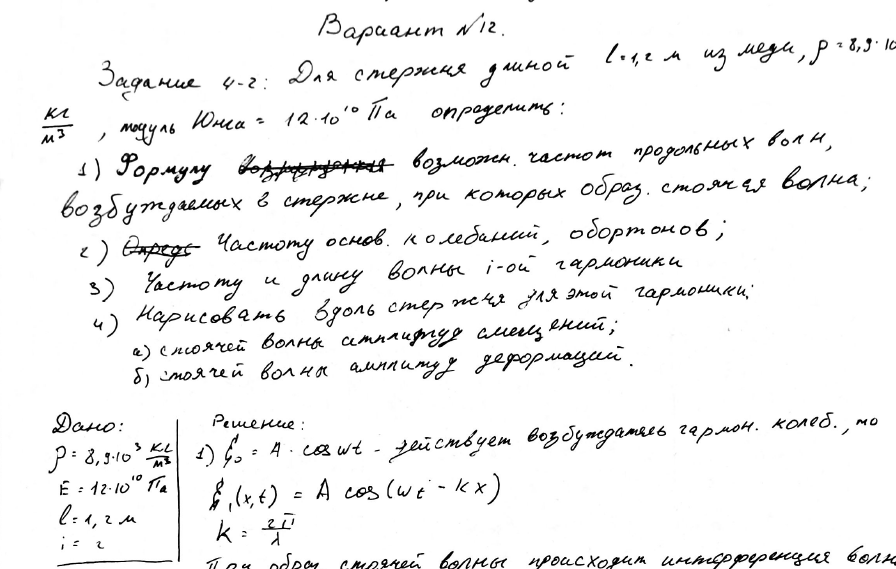 Вариант №12.
Задание 4-2: Для стержня длиной l=1,2 м из меди, ρ=8,9·10
кг/м³, модуль Юнга = 12·10¹⁰ Па определить:
1) Формулу возможн. частот продольных волн,
возбуждаемых в стержне, при которых образ. стоячая волна;
2) Частоту основ. колебаний, обортонов;
3) Частоту и длину волны i-ой гармоники
4) Нарисовать вдоль стержня для этой гармоники:
а) стоячей волны амплитуд смещений;
б) стоячей волны амплитуд деформаций.
Дано:
ρ=8,9·10³ кг/м³
E=12·10¹⁰ Па
l=1,2 м
i=2
Решение:
1) ξ₀ = A · cos ωt - действует возбуждатель гармон. колеб., то
ξ₁(x,t) = A cos(ωt - kx)
k = 2π/λ
При образ. стоячей волны происходит интерференция волн